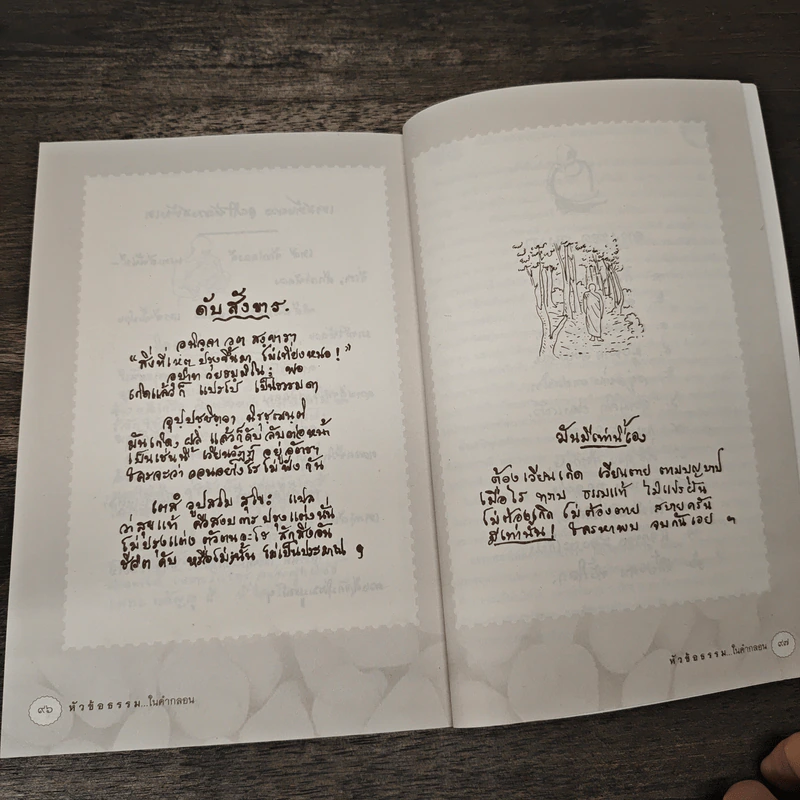 ดับ สังขาร.
อนิจฺจา วต สงฺขารา
"สิ่งที่เหตุ ปรุงขึ้นมา ไม่เที่ยงหนอ!"
อุปฺปาท วยธมฺมิโน: พอ
เกิดแล้วก็ แปรไป เป็นธรรมดา
อุปฺปชฺชิตฺวา นิรุชฺฌนฺติ
มันเกิด, ผลิ แล้วก็ดับ ลับต่อหน้า
เป็นเช่นนี้ เวียนวัฏฏ์ อยู่อัตรา
ใครจะว่า วอนอย่างไร ไม่ฟัง กัน
เตสํ วูปสโม สุโข: แปล
ว่าสุขแท้ คือสงบการ ปรุงแต่งนั่น
ไม่ปรุงแต่ง ตัวตนอะไร สักสิ่งอัน
ชีวิต ดับ หรือไม่นั้น ไม่เป็นประมาณ ฯ
๙๖ หัวข้อธรรม...ในคำกลอน
มันมีเท่านี้เอง
ต้อง เวียนเกิด เวียนตาย ตามบุญบาป
เมื่อไร ทราบ ธรรมแท้ ไม่แปรผัน
ไม่ต้องเกิด ไม่ต้องตาย สบายครัน
มีเท่านั้น! ใครหาพบ จบกันเอย ฯ
หัวข้อธรรม...ในคำกลอน ๙๗